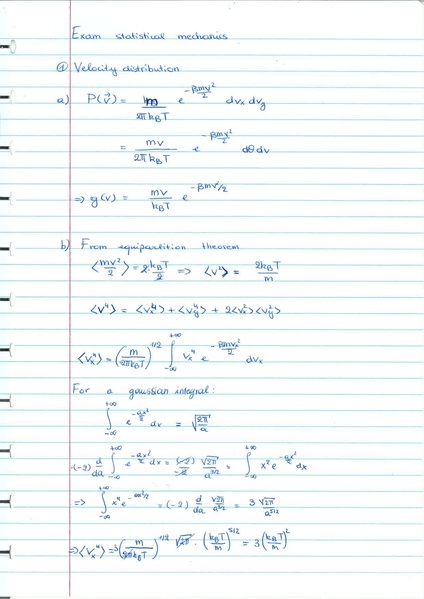 Exam statistical mechanics
① Velocity distribution
a) P(v⃗) = m/(2πk_BT) e^(-βmv²/2) dv_x dv_y
= mv/(2πk_BT) e^(-βmv²/2) dθdv
⇒ g(v) = mv/(k_BT) e^(-βmv²/2)
b) From equipartition theorem
⟨mv²/2⟩ = 2·k_BT/2 ⇒ ⟨v²⟩ = 2k_BT/m
⟨v⁴⟩ = ⟨v_x⁴⟩ + ⟨v_y⁴⟩ + 2⟨v_x²⟩⟨v_y²⟩
⟨v_x⁴⟩ = (m/(2πk_BT))^(1/2) ∫_{-∞}^{+∞} v_x⁴ e^(-βmv_x²/2) dv_x
For a gaussian integral:
∫_{-∞}^{+∞} e^(-ax²/2) dv = √(2π/a)
(-2) d/da ∫_{-∞}^{+∞} e^(-ax²/2) dx = (-2)/(-2) √(2π)/a^(3/2) = ∫_{-∞}^{+∞} x² e^(-ax²/2) dx
⇒ ∫_{-∞}^{+∞} x⁴ e^(-ax²/2) = (-2) d/da √(2π)/a^(3/2) = 3 √(2π)/a^(5/2)
⇒ ⟨v_x⁴⟩ = 3(m/(2πk_BT))^(1/2) √(2π) · (k_BT/m)^(5/2) = 3(k_BT/m)²